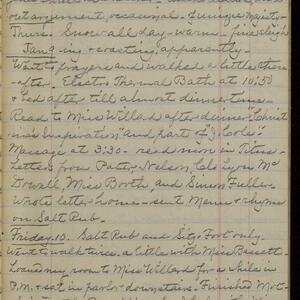 out argument, occasional
Thurs. Snow all day - warm - fine sleigh
Jan 9 ing & coasting, apparently.
Went to prayers and walked a little then
after. Electro Thermal Bath at 10:50
& bed after till almost dinner time
Read to Miss Willard after dinner "Christ
mas inspiration" and part of "Cole"
Massage at 3:30 -
Letters from Patter, Nelson, Mc
Dowell, Miss Borth, and Simon Fuller.
Wrote letter home - sent Menu & rhyme
on Salt Rub.
Friday 10. Salt Rub and Sitz, Foot only.
Went to walk twice, a little with Miss Bassett -
Loaned my room to Miss Willard for a while in
P.M. & sat in parlor downstairs. Finished Mot-